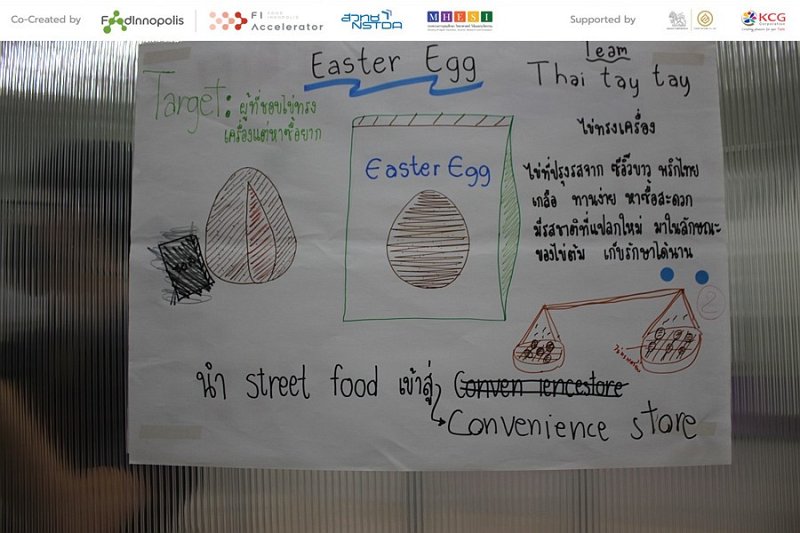 Co-Created by
FoodInnopolis
FI
FOOD INNOPOLIS
Accelerator
สวทช
NSTDA
MHESI
Supported by
KCG
Corporation
Easter Egg
Team
Thai tay tay
Target: ผู้ที่ชอบไข่ทรง
เครื่องแต่หาซื้อยาก
Easter Egg
ไข่ทรงเครื่อง
ไข่ที่ปรุงรสจาก ซีอิ๊วขาว พริกไทย
เกลือ ทานง่าย หาซื้อสะดวก
มีรสชาติที่แปลกใหม่ มาในลักษณะ
ของไข่ต้ม เก็บรักษาได้นาน
2
นำ street food เข้าสู่ Conveniencestore
Convenience store